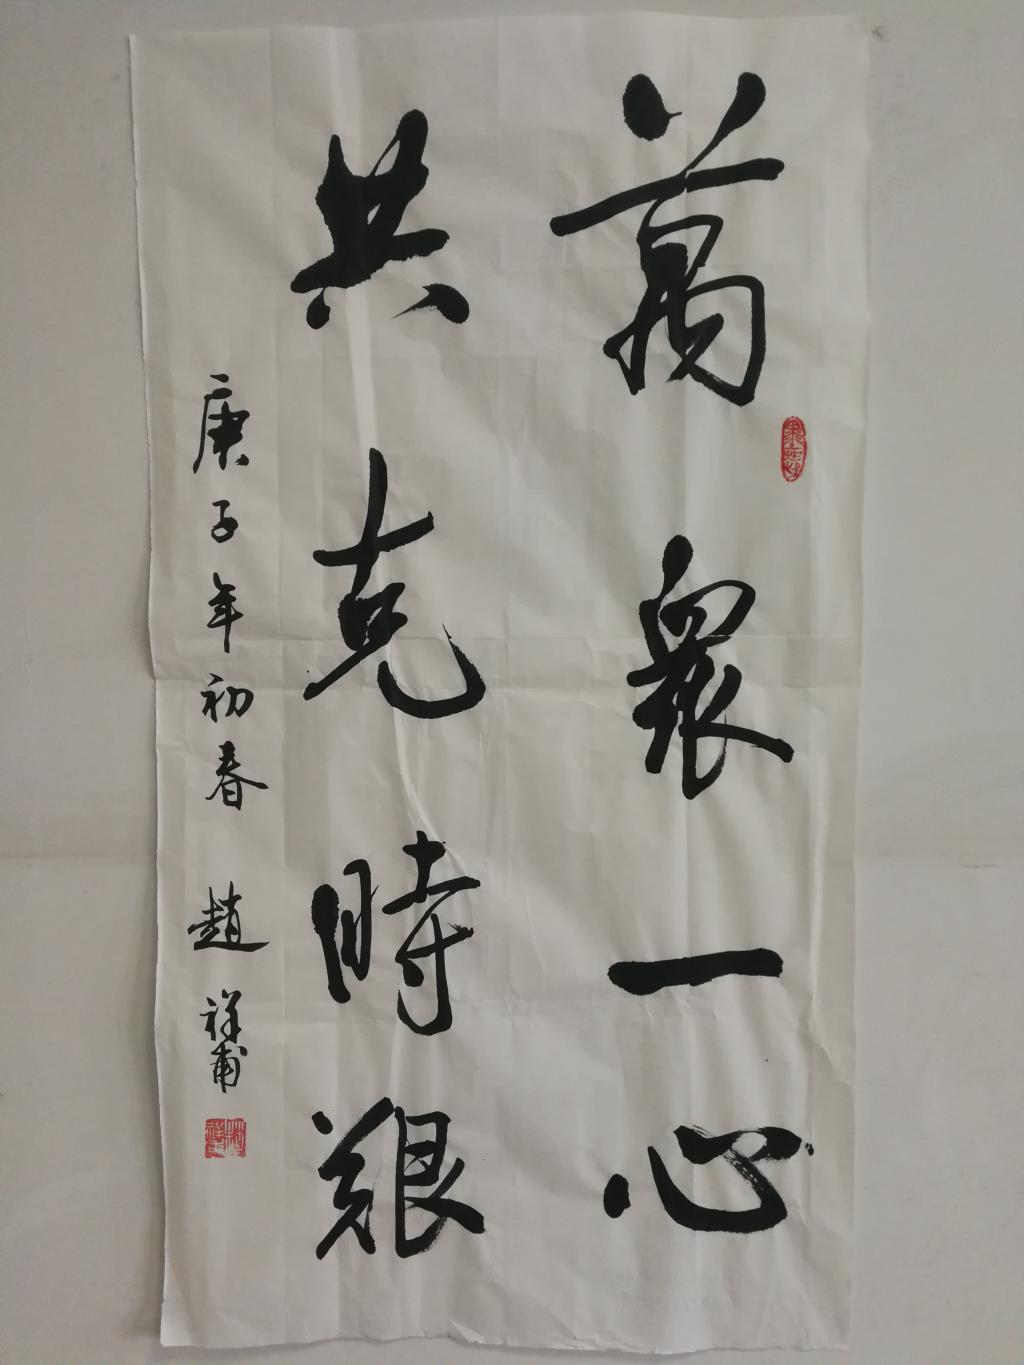 萬衆一心
共克時艱
庚子年初春 趙祥甫